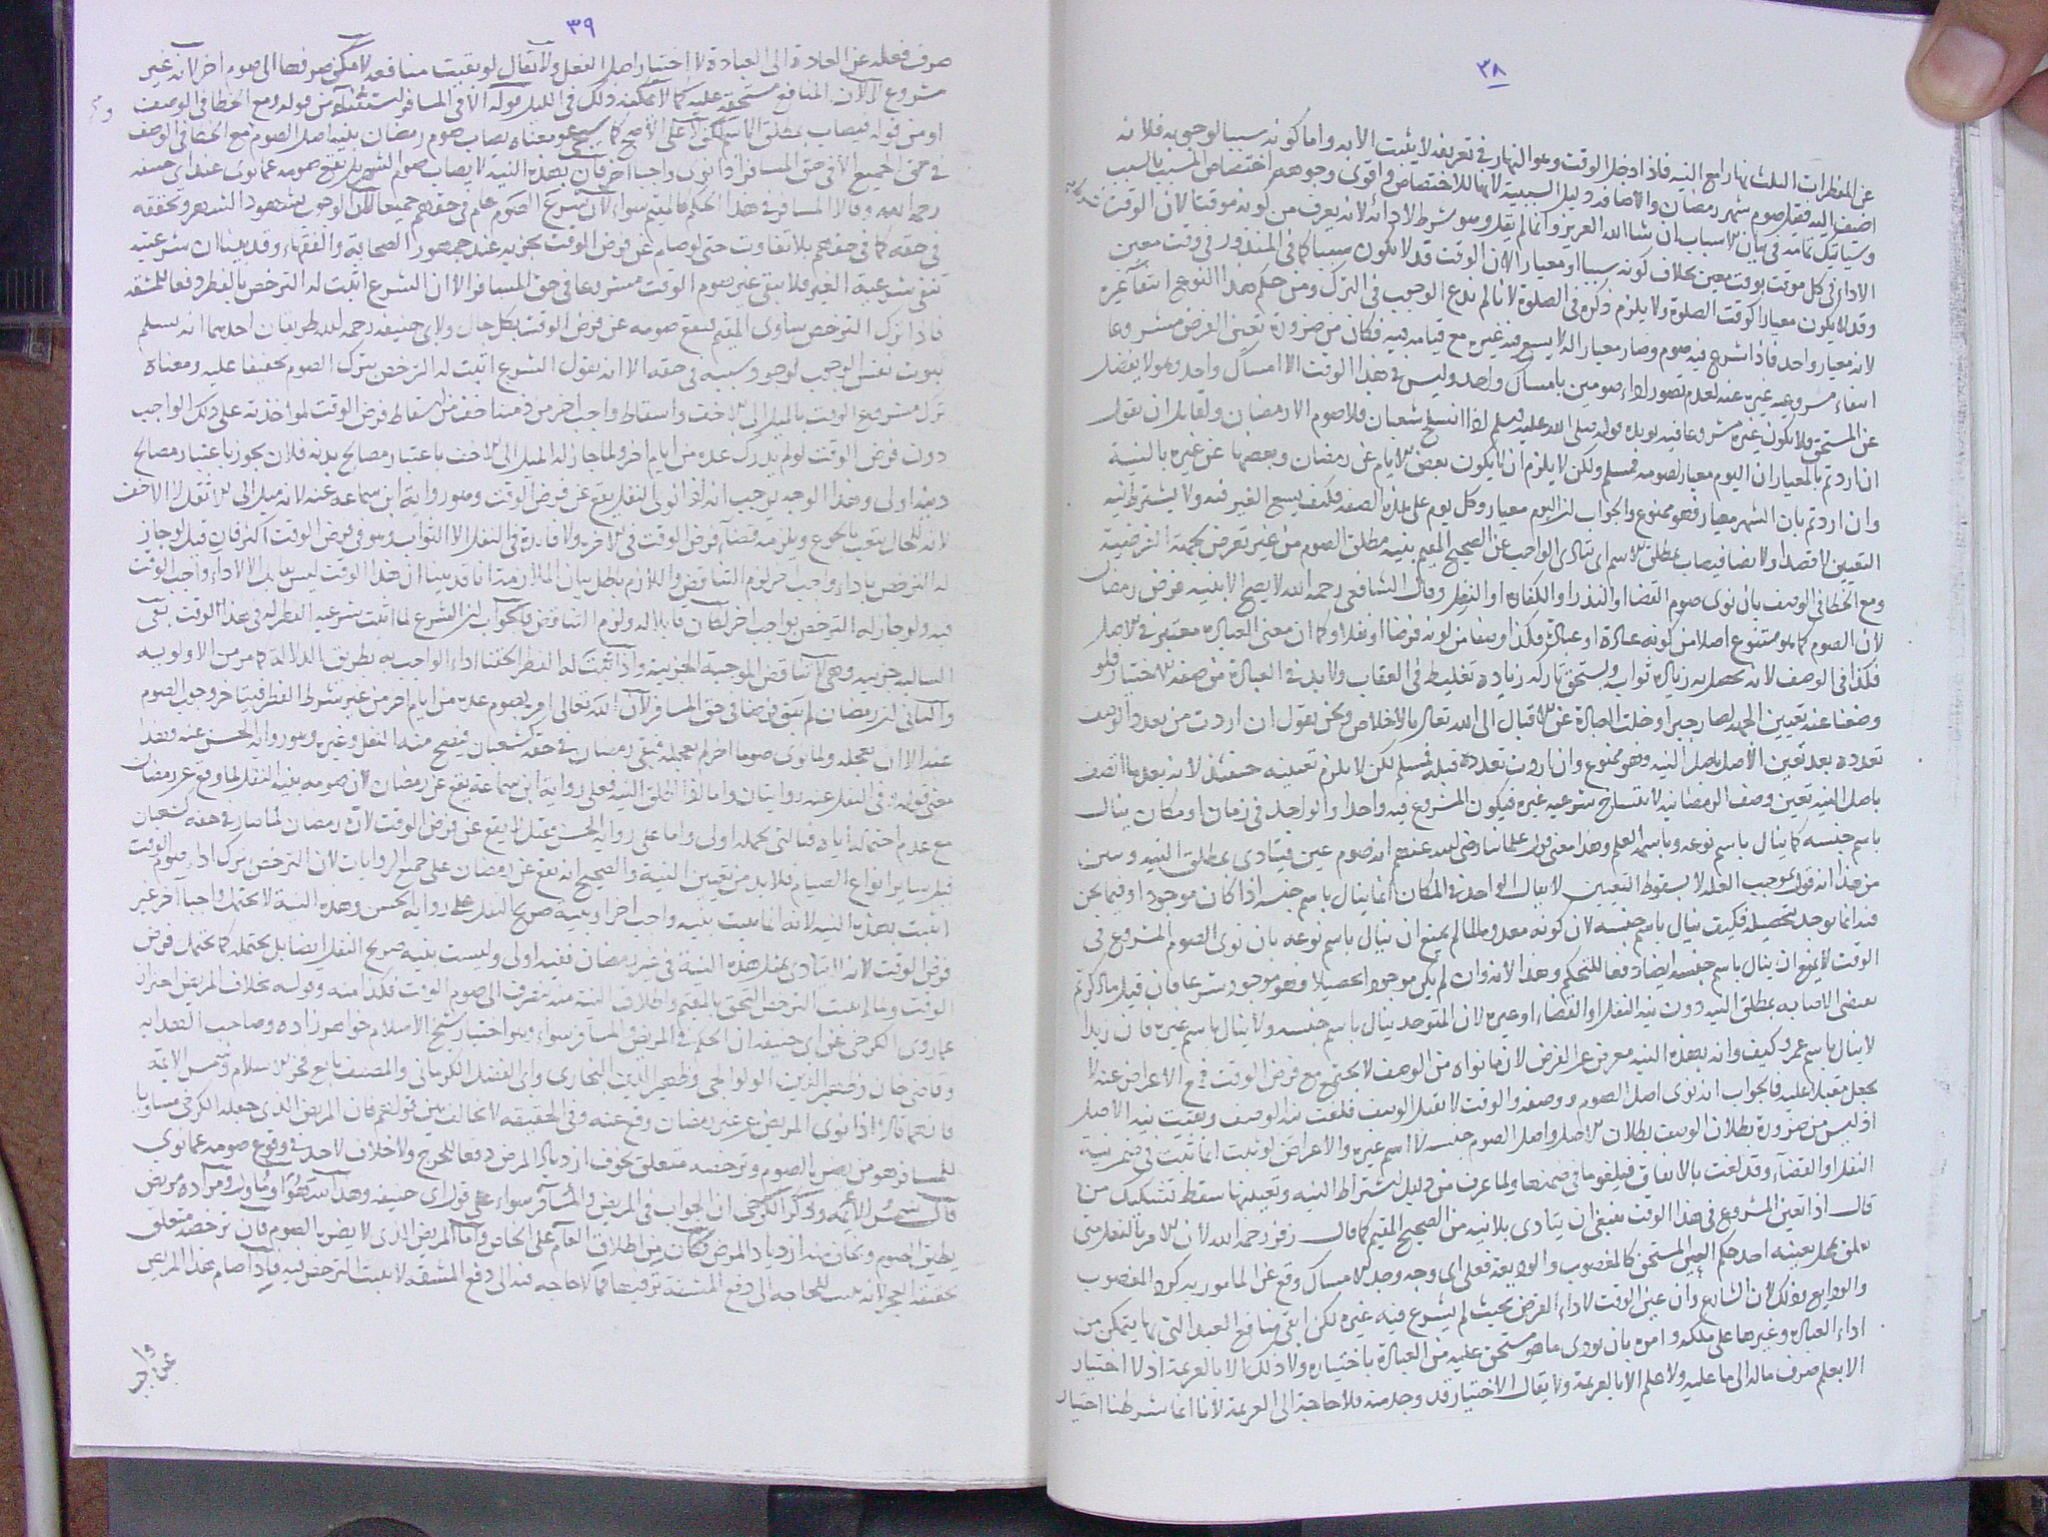 ٣٨
عن المفطرات الثلث نهارا مع النية فاذا دخل الوقت وهو النهار في تعريفه لا يثبت الا به واما كونه سببا لوجوبه فلانه
اضيف اليه فقيل صوم شهر رمضان والاضافة دليل السببية لانها للاختصاص واقوى وجوهه اختصاص المسبب بالسبب
وسيأتيك تمامه في بيان الاسباب ان شا الله العزيز وانما لم يقل وهو شرط لادائه لانه يعرف من كونه موقتا لان الوقت
الاداء في كل موقت بوقت معين بخلاف كونه سببا او معيارا لان الوقت قد لا يكون سببا كما في المنذور في وقت معين
وقد لا يكون معيارا كوقت الصلوة ولا يلزم ذكره في الصلوة لانا لم ندع الوجوب في الترك ومن حكم هذا النوع انتفاء غيره
لانه معيار واحد فاذا شرع فيه صوم وصار معيارا له لا يسع فيه غيره مع قيامه فيه فكان من ضرورة تعين الفرض مشروعا
انتفاء مشروعية غيره عنه لعدم تصور اداء صومين بامساك واحد وليس في هذا الوقت الا امساك واحد وهو لا يفضل
عن المستحق فلا يكون غيره مشروعا فيه يؤيده قوله صلى الله عليه وسلم اذا انسلخ شعبان فلا صوم الا رمضان ولقائل ان يقول
ان اردتم بالمعيار ان اليوم معيار لصومه فمسلم ولكن لا يلزم ان لا يكون بعض الايام عن رمضان وبعضها عن غيره بالنية
وان اردتم بان الشهر معيار فهو ممنوع والجواب ان اليوم معيار وكل يوم على هذه الصفة فكيف يسع الغير فيه ولا يشترط نية
التعيين لا قصدا ولا ايضا فيصاب بمطلق الاسم اي يتادى الواجب عن الصحيح المقيم بنية مطلق الصوم من غير تعرض بجهة الفرضية
ومع الخطا في الوصف بان نوى صوم القضا او النذر او الكفارة او النفل وقال الشافعي رحمه الله لا يصح الا بنية فرض رمضان
لان الصوم كما هو متنوع اصلا من كونه عادة او عبادة فكذا وصفا من كونه فرضا او نفلا وكما ان معنى العبادة معتبر في الاصل
فكذا في الوصف لانه يحصل به زيادة ثواب ويستحق تاركه زيادة تغليظ في العقاب ولا بد في العبادة من صفة الاختيار فلو
وضعنا عنه تعيين الجهة لصار جبرا وخلت العبادة عن الاقبال الى الله تعالى بالاخلاص ونحن نقول ان اردت من تعدد الوصف
تعدده بعد تعين الاصل باصل النية وهو ممنوع وان اردت تعدده قبله فمسلم لكن لا يلزم تعيينه حينئذ لانه بعد ما اتصف
باصل النية تعين وصف الرمضانية لانتساخ شرعية غيره فيكون المشروع فيه واحدا والواحد في زمان او مكان ينال
باسم جنسه كما ينال باسم نوعه وباسمه العلم وهذا معنى قول علمائنا رضى الله عنهم انه صوم عين فيتادى بمطلق النية وتبين
من هذا انه قول بموجب العلة لا بسقوط التعيين لا يقال الواحد في المكان انما ينال باسم جنسه اذا كان موجودا وفيما نحن
فيه انما يوجد بتحصيله فكيف ينال باسم جنسه لان كونه معدوما لما لم يمنع ان ينال باسم نوعه بان نوى الصوم المشروع في
الوقت لا يمنع ان ينال باسم جنسه ايضا دفعا للتحكم وهذا لانه وان لم يكن موجودا تحصيلا فهو موجود شرعا فان قيل ما ذكرتم
يقتضي الاصابة بمطلق النية دون نية النفل او القضاء او غيره لان المتوحد ينال باسم جنسه ولا ينال باسم غيره فان زيدا
لا ينال باسم عمرو كيف وانه بهذه النية معرض عن الفرض لان ما نواه من الوصف لا يجتمع مع فرض الوقت فمع الاعراض عنه لا
يجعل مقبلا عليه فالجواب انه نوى اصل الصوم ووصفه والوقت لا يقبل الوصف فلغت نية الوصف وبقيت نية الاصل
اذ ليس من ضرورة بطلان الوصف بطلان الاصل واصل الصوم جنسه لا اسم غيره والاعراض لو ثبت انما ثبت في ضمن نية
النفل او القضاء وقد لغت بالاتفاق فيلغو ما في ضمنها ولما عرف من دليل اشتراط النية وتعيينها سقط تشكيك من
قال اذا تعين المشروع في هذا الوقت ينبغي ان يتادى بلا نية من الصحيح المقيم كما قال زفر رحمه الله لان الامر بالفعل متى
تعلق بمحل بعينه اخذ حكم العين المستحق كالمغصوب والوديعة فعلى اي وجه وجد الامساك وقع عن المامور به كرد المغصوب
والودايع وذلك لان الشارع وان عين الوقت لاداء الفرض بحيث لم يشرع فيه غيره لكن ابقى منافع العبد التي بها يتمكن من
اداء العبادة وغيرها على ملكه وامره بان يودى ما هو مستحق عليه من العبادة باختياره ولا ذلك الا بالعزيمة اذ لا اختيار
الا بعلم صرف ماله الى ما عليه ولا علم الا بالعزيمة ولا يقال الاختيار قد وجد منه فلا حاجة الى العزيمة لانا انما شرطنا اختيار
٣٩
صرف فعله عن العادة الى العبادة لا اختيار اصل الفعل ولا يقال لو بقيت منافعه لامكن صرفها الى صوم اخر لانه غير
مشروع الا ان المنافع مستحقة عليه كما لا يمكنه ذلك في الليل قوله الا في المسافر استثناء من قوله ومع الخطا في الوصف
او من قوله فيصاب بمطلق الاسم لكن لا على الاصح كما سيجئ ومعناه يصاب صوم رمضان بنية اصل الصوم مع الخطا في الوصف
في حق الجميع الا في حق المسافر اذا نوى واجبا اخر فان بهذه النية لا يصاب صوم الشهر بل يقع صومه عما نوى عند ابي حنيفة
رحمه الله وقالا المسافر في هذا الحكم كالمقيم سواء لان شرع الصوم عام في حقهم جميعا لان الوجوب بشهود الشهر وتحققه
في حقه كما في حقهم بلا تفاوت حتى لو صام عن فرض الوقت يجزيه عند جمهور الصحابة والفقهاء وقد بينا ان شرعيته
تنفي شرعية الغير فلا يبقى غير صوم الوقت مشروعا في حق المسافر الا ان الشرع اثبت له الترخص بالفطر دفعا للمشقة
فاذا ترك الترخص ساوى المقيم فيقع صومه عن فرض الوقت بكل حال ولابي حنيفة رحمه الله طريقان احدهما انه يسلم
ثبوت نفس الوجوب لوجود سببه في حقه الا انه يقول الشرع اثبت له الترخص بترك الصوم تخفيفا عليه ومعناه
ترك مشروع الوقت بالميل الى الاخف واسقاط واجب اخر من ذمته اخف من اسقاط فرض الوقت لمواخذته على ذلك الواجب
دون فرض الوقت لو لم يدرك عدة من ايام اخر ولما جاز له الميل الى الاخف باعتبار مصالح بدنه فلان يجوز باعتبار مصالح
دينه اولى وهذا الوجه يوجب انه اذا نوى النفل يقع عن فرض الوقت وهو رواية ابن سماعة عنه لانه ميل الى الاثقل لا الاخف
لانه للحال يتعب بالجوع ويلزمه قضاء فرض الوقت في الاخرة ولا فائدة في النفل الا الثواب وهو في فرض الوقت اكثر فان قيل لو جاز
له الترخص باداء واجب اخر لزم التناقض واللازم باطل بيان الملازمة انا قد بينا ان هذا الوقت ليس بقابل الا لاداء واجب الوقت
فيه ولو جاز له الترخص بواجب اخر لكان قابلا له ولزم التناقض فالجواب ان الشرع لما اثبت شرعية الفطر له في هذا الوقت بقى
السالبة جزئية وهي لا تناقض الموجبة الجزئية واذا ثبت له الفطر اثبتنا اداء الواجب به بطريق الدلالة كما مر من الاولوية
والثاني ان رمضان لم يبق فرضا في حق المسافر لان الله تعالى امره بصوم عدة من ايام اخر من غير شرط الفطر فيتاخر وجوب الصوم
عنه الا ان يعجله ولما نوى صوما اخر لم يعجله فبقى رمضان في حقه كشعبان فيصح منه النفل وغيره وهو رواية الحسن عنه وهذا
معنى قوله وفي النفل عنه روايتان واما اذا اطلق النية فعلى رواية ابن سماعة يقع عن رمضان لان صومه بنية النفل لما وقع عن رمضان
مع عدم احتمالها اياه فبالتي تحتمله اولى واما على رواية الحسن فقيل لا يقع عن فرض الوقت لان رمضان لما صار في حقه كشعبان
قبل سائر انواع الصيام فلا بد من تعيين النية والصحيح انه يقع عن رمضان على جميع الروايات لان الترخص بترك اداء صوم الوقت
لا يثبت بهذه النية لانه انما يثبت بنية واجب اخر او بنية صريح النفل على رواية الحسن وهذه النية لا تحتمل واجبا اخر غير
فرض الوقت لانه لا يتادى بمثل هذه النية في غير رمضان ففيه اولى وليست بنية صريح النفل ايضا بل يحتمله كما يحتمل فرض
الوقت ولما لم يثبت الترخص التحق بالمقيم واطلاق النية منه ينصرف الى صوم الوقت فكذا منه وقوله بخلاف المريض احتراز
عما روى الكرخي عن ابي حنيفة ان الحكم في المريض والمسافر سواء وهو اختيار شيخ الاسلام خواهر زاده وصاحب الهداية
وقاضى خان وظهير الدين الولوالجي وظهير الدين البخاري وابي الفضل الكرماني والمصنف تابع فخر الاسلام وشمس الائمة
فانهما قالا اذا نوى المريض عن غير رمضان وقع عنه وفي الحقيقة لا تخالف بين قوليهم فان المريض الذى جعله الكرخي مساويا
للمسافر هو من يضره الصوم وترخصه متعلق بخوف ازدياد المرض دفعا للحرج ولا خلاف لاحد في وقوع صومه عما نوى
قال شمس الائمة وذكر الكرخي ان الجواب في المريض والمسافر سواء على قول ابي حنيفة وهذا سهو او مأول ومراده مريض
يطيق الصوم ويخاف منه ازدياد المرض فكان من اطلاق العام على الخاص واما المريض الذى لا يضره الصوم فان ترخصه متعلق
بحقيقة العجز لانه ثبت للحاجة الى دفع المشقة ترفيها فما لا حاجة فيه الى دفع المشقة لا يثبت الترخص فيه فاذا صام هذا المريض
عن واجب